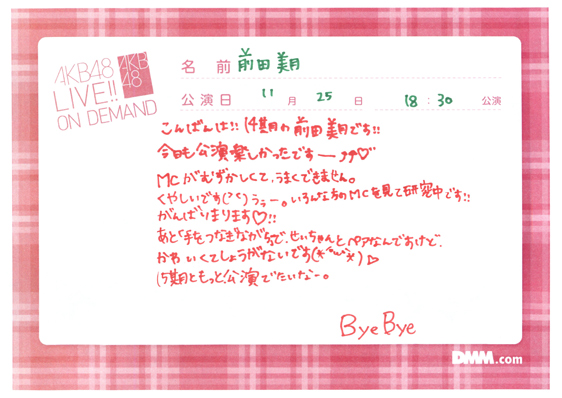 AKB48
LIVE!!
ON DEMAND
AKB
48
名 前 前田美月
公演日 11 月 25 日 18 : 30 公演
こんばんは!! 14期の前田美月です!!
今日も公演楽しかったですー♡
MCがむずかしくて、うまくできません。
くやしいです うぅー。いろんな方のMCを見て研究中です!!
がんばりまります♡!!
あと「手をつなぎながら」で、せいちゃんとペアなんですけど、
かわいくてしょうがないです(*^ω^*)
15期ともっと公演でたいなー。
Bye Bye
DMM.com